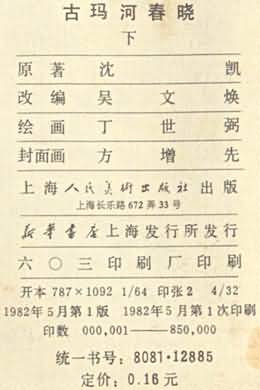 古玛河春晓
下
原著 沈凯
改编 吴文焕
绘画 丁世弼
封面画 方增先
上海人民美術出版社出版
上海长乐路672弄33号
新华書店上海发行所发行
六〇三印刷厂印刷
开本787×1092 1/64 印张2 4/32
1982年5月第1版 1982年5月第1次印刷
印数 000,001——850,000
统一书号：8081·12885
定价：0.16元